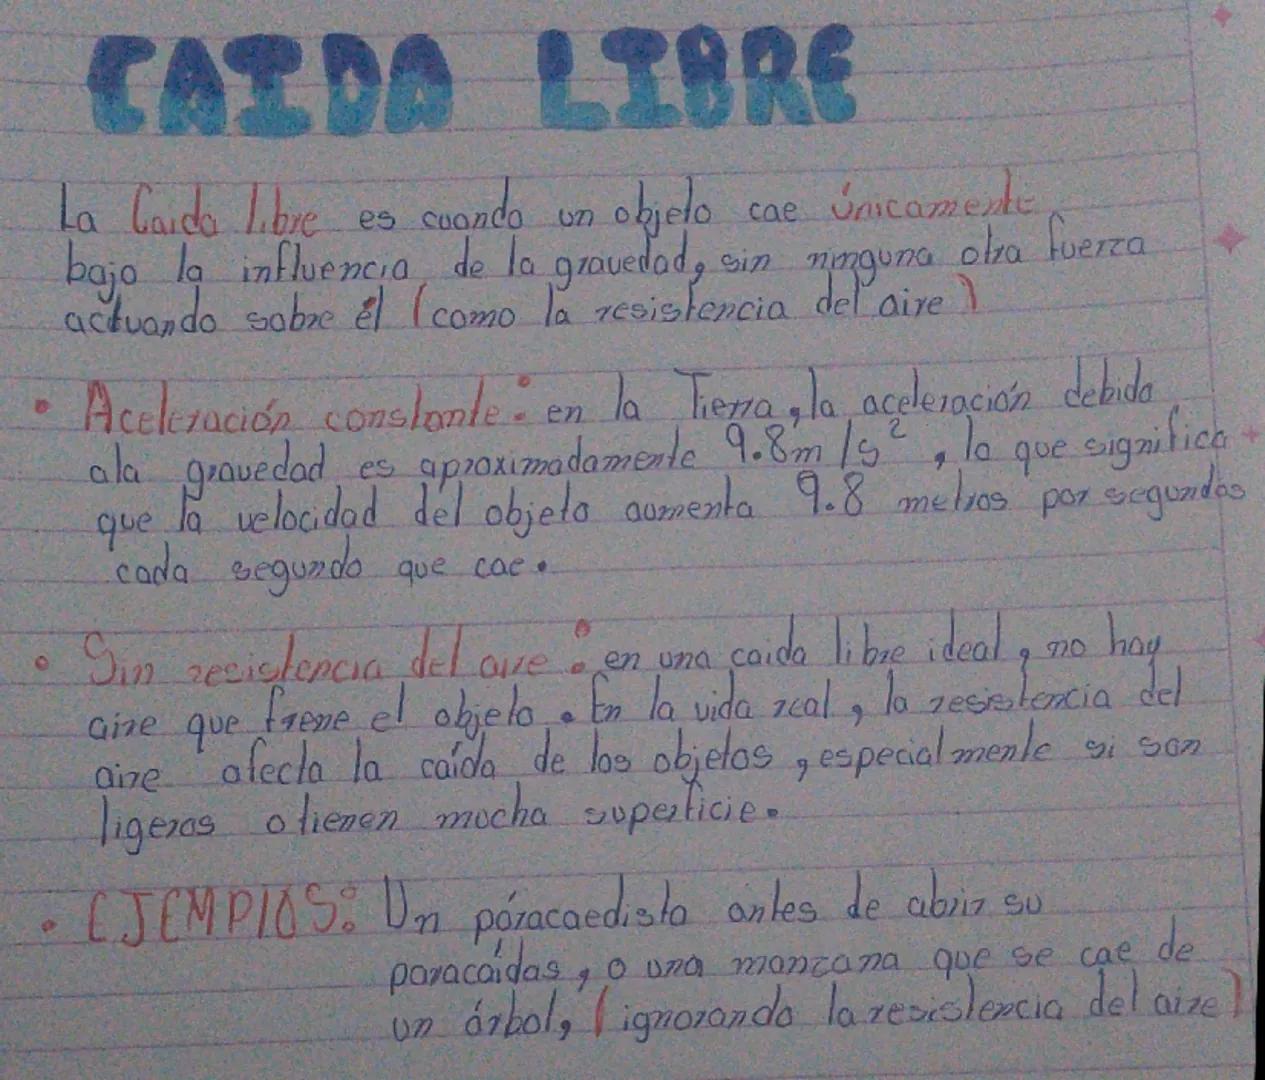 CAIDA LIBRE
La Caida libre es cuando un objeto cae únicamente
bajo la influencia de la gravedad, sin ninguna otra fuerza
actuando sobre él (como la resistencia del aire)
• Aceleración constante: en la Tierra, la aceleración debida
ala gravedad es aproximadamente 9.8m/s², lo que significa
que la velocidad del objeto aumenta 9.8 metros por segundos
cada segundo que cae.
• Sin resistencia del aire: en una caida libre ideal, no hay
aire que frene el objeto. En la vida real, la resistencia del
aire afecta la caída de los objetos, especialmente si son
ligeros o tienen mucha superficie.
• EJEMPlOS: Un páracaedista antes de abrir su
paracaídas, o una manzana que se cae de
un árbol, (ignorando la resistencia del aire)